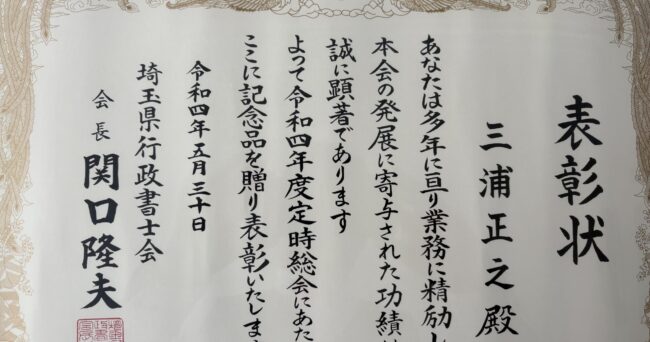 表彰状
三浦正之殿
あなたは多年に亘り業務に精励し
本会の発展に寄与された功績は
誠に顕著であります
よって令和四年度定時総会にあた
ここに記念品を贈り表彰いたしま
令和四年五月三十日
埼玉県行政書士会
会長 関口隆夫